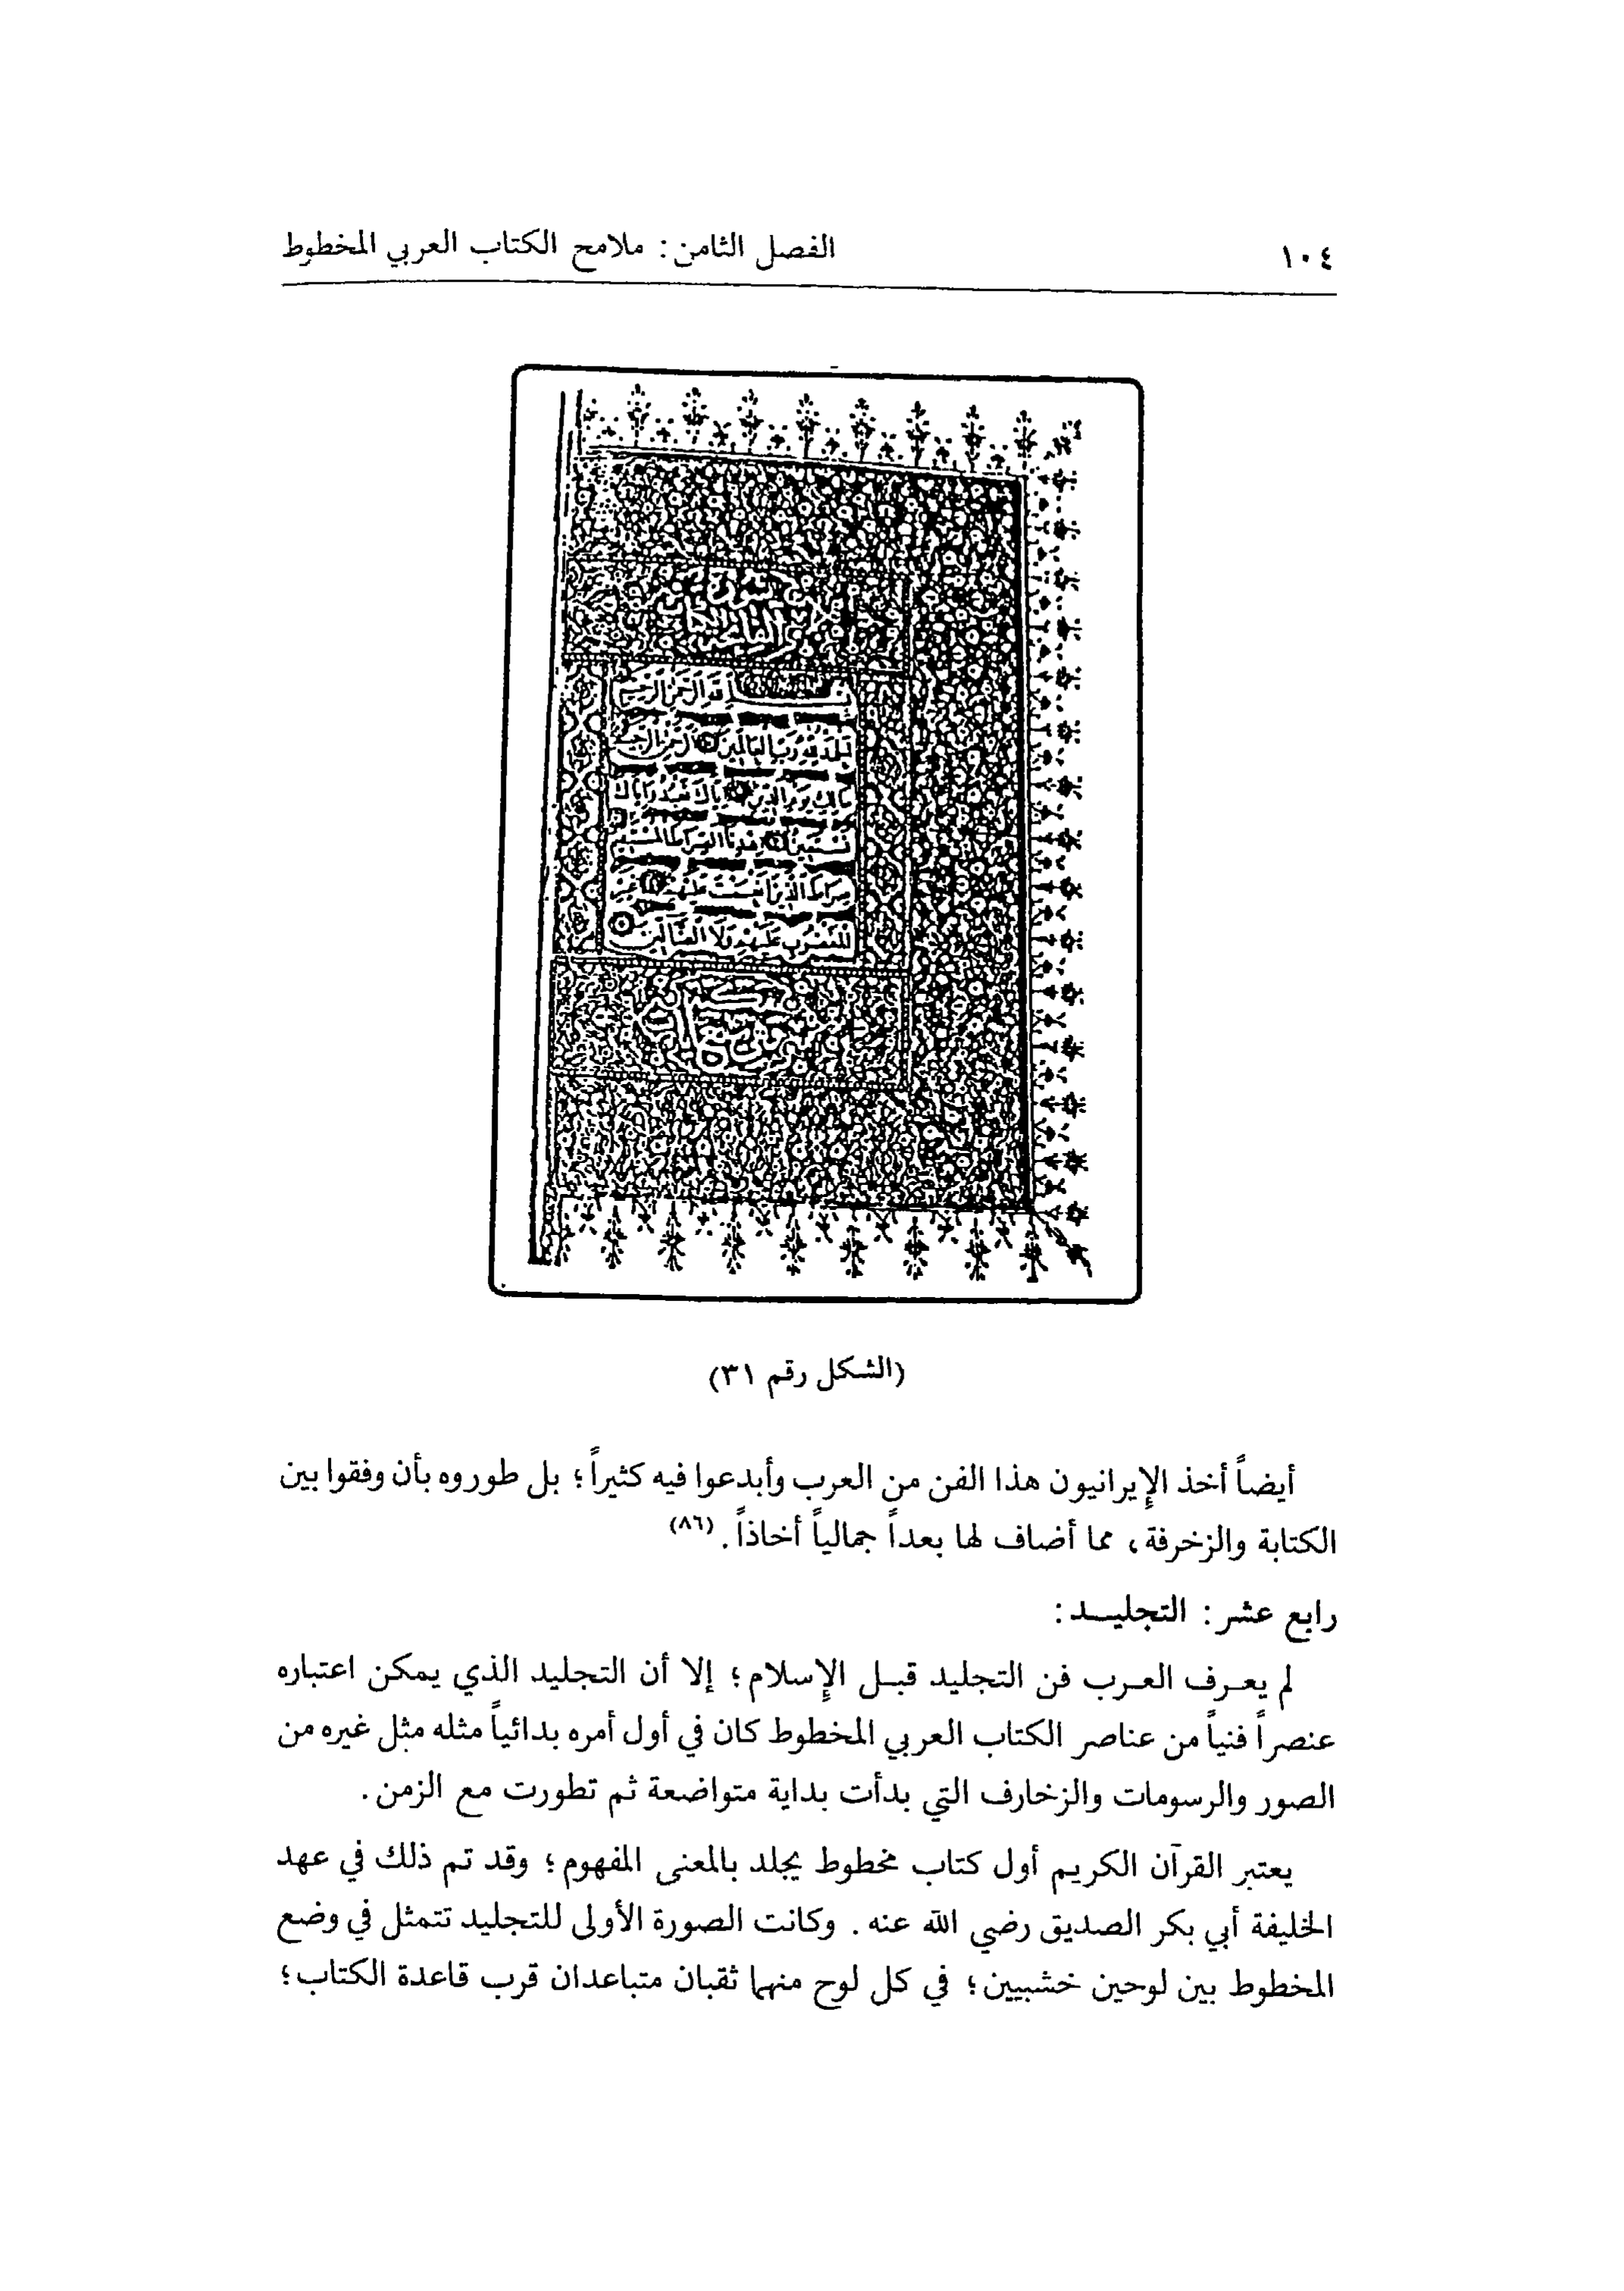 ١٠٤
الفصل الثامن: ملامح الكتاب العربي المخطوط
الرحمن الرحيم
مالك يوم الدين
(الشكل رقم ٣١)
أيضاً أخذ الإيرانيون هذا الفن من العرب وأبدعوا فيه كثيراً؛ بل طوروه بأن وفقوا بين
الكتابة والزخرفة، مما أضاف لها بعداً جمالياً أخاذاً. (٨٦)
رابع عشر: التجليـد:
لم يعـرف العـرب فن التجليد قبـل الإسلام؛ إلا أن التجليد الذي يمكن اعتباره
عنصراً فنياً من عناصر الكتاب العربي المخطوط كان في أول أمره بدائياً مثله مثل غيره من
الصور والرسومات والزخارف التي بدأت بداية متواضعة ثم تطورت مع الزمن.
يعتبر القرآن الكريم أول كتاب مخطوط يجلد بالمعنى المفهوم؛ وقد تم ذلك في عهد
الخليفة أبي بكر الصديق رضي الله عنه. وكانت الصورة الأولى للتجليد تتمثل في وضع
المخطوط بين لوحين خشبيين؛ في كل لوح منهما ثقبان متباعدان قرب قاعدة الكتاب؛